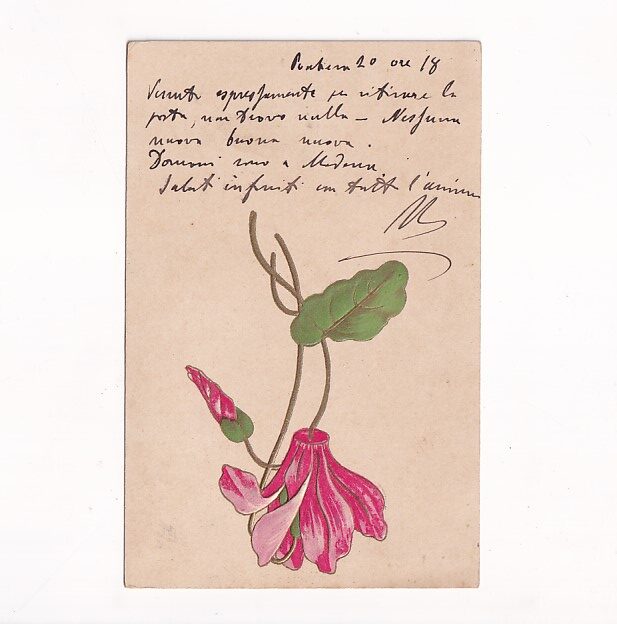 20 ore 18
Venuta espressamente per ritirare la
posta, non trovo nulla – Nessuna
nuova buona nuova.
Domani sono a Modena
Saluti infiniti con tutta l'anima